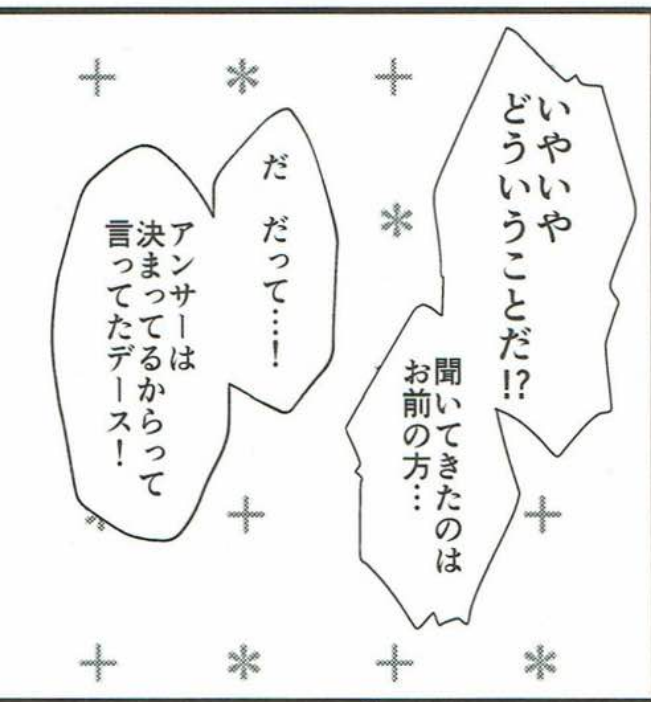 いやいや
どういうことだ!?
聞いてきたのは
お前の方…
だ だって…!
アンサーは
決まってるからって
言ってたデース!